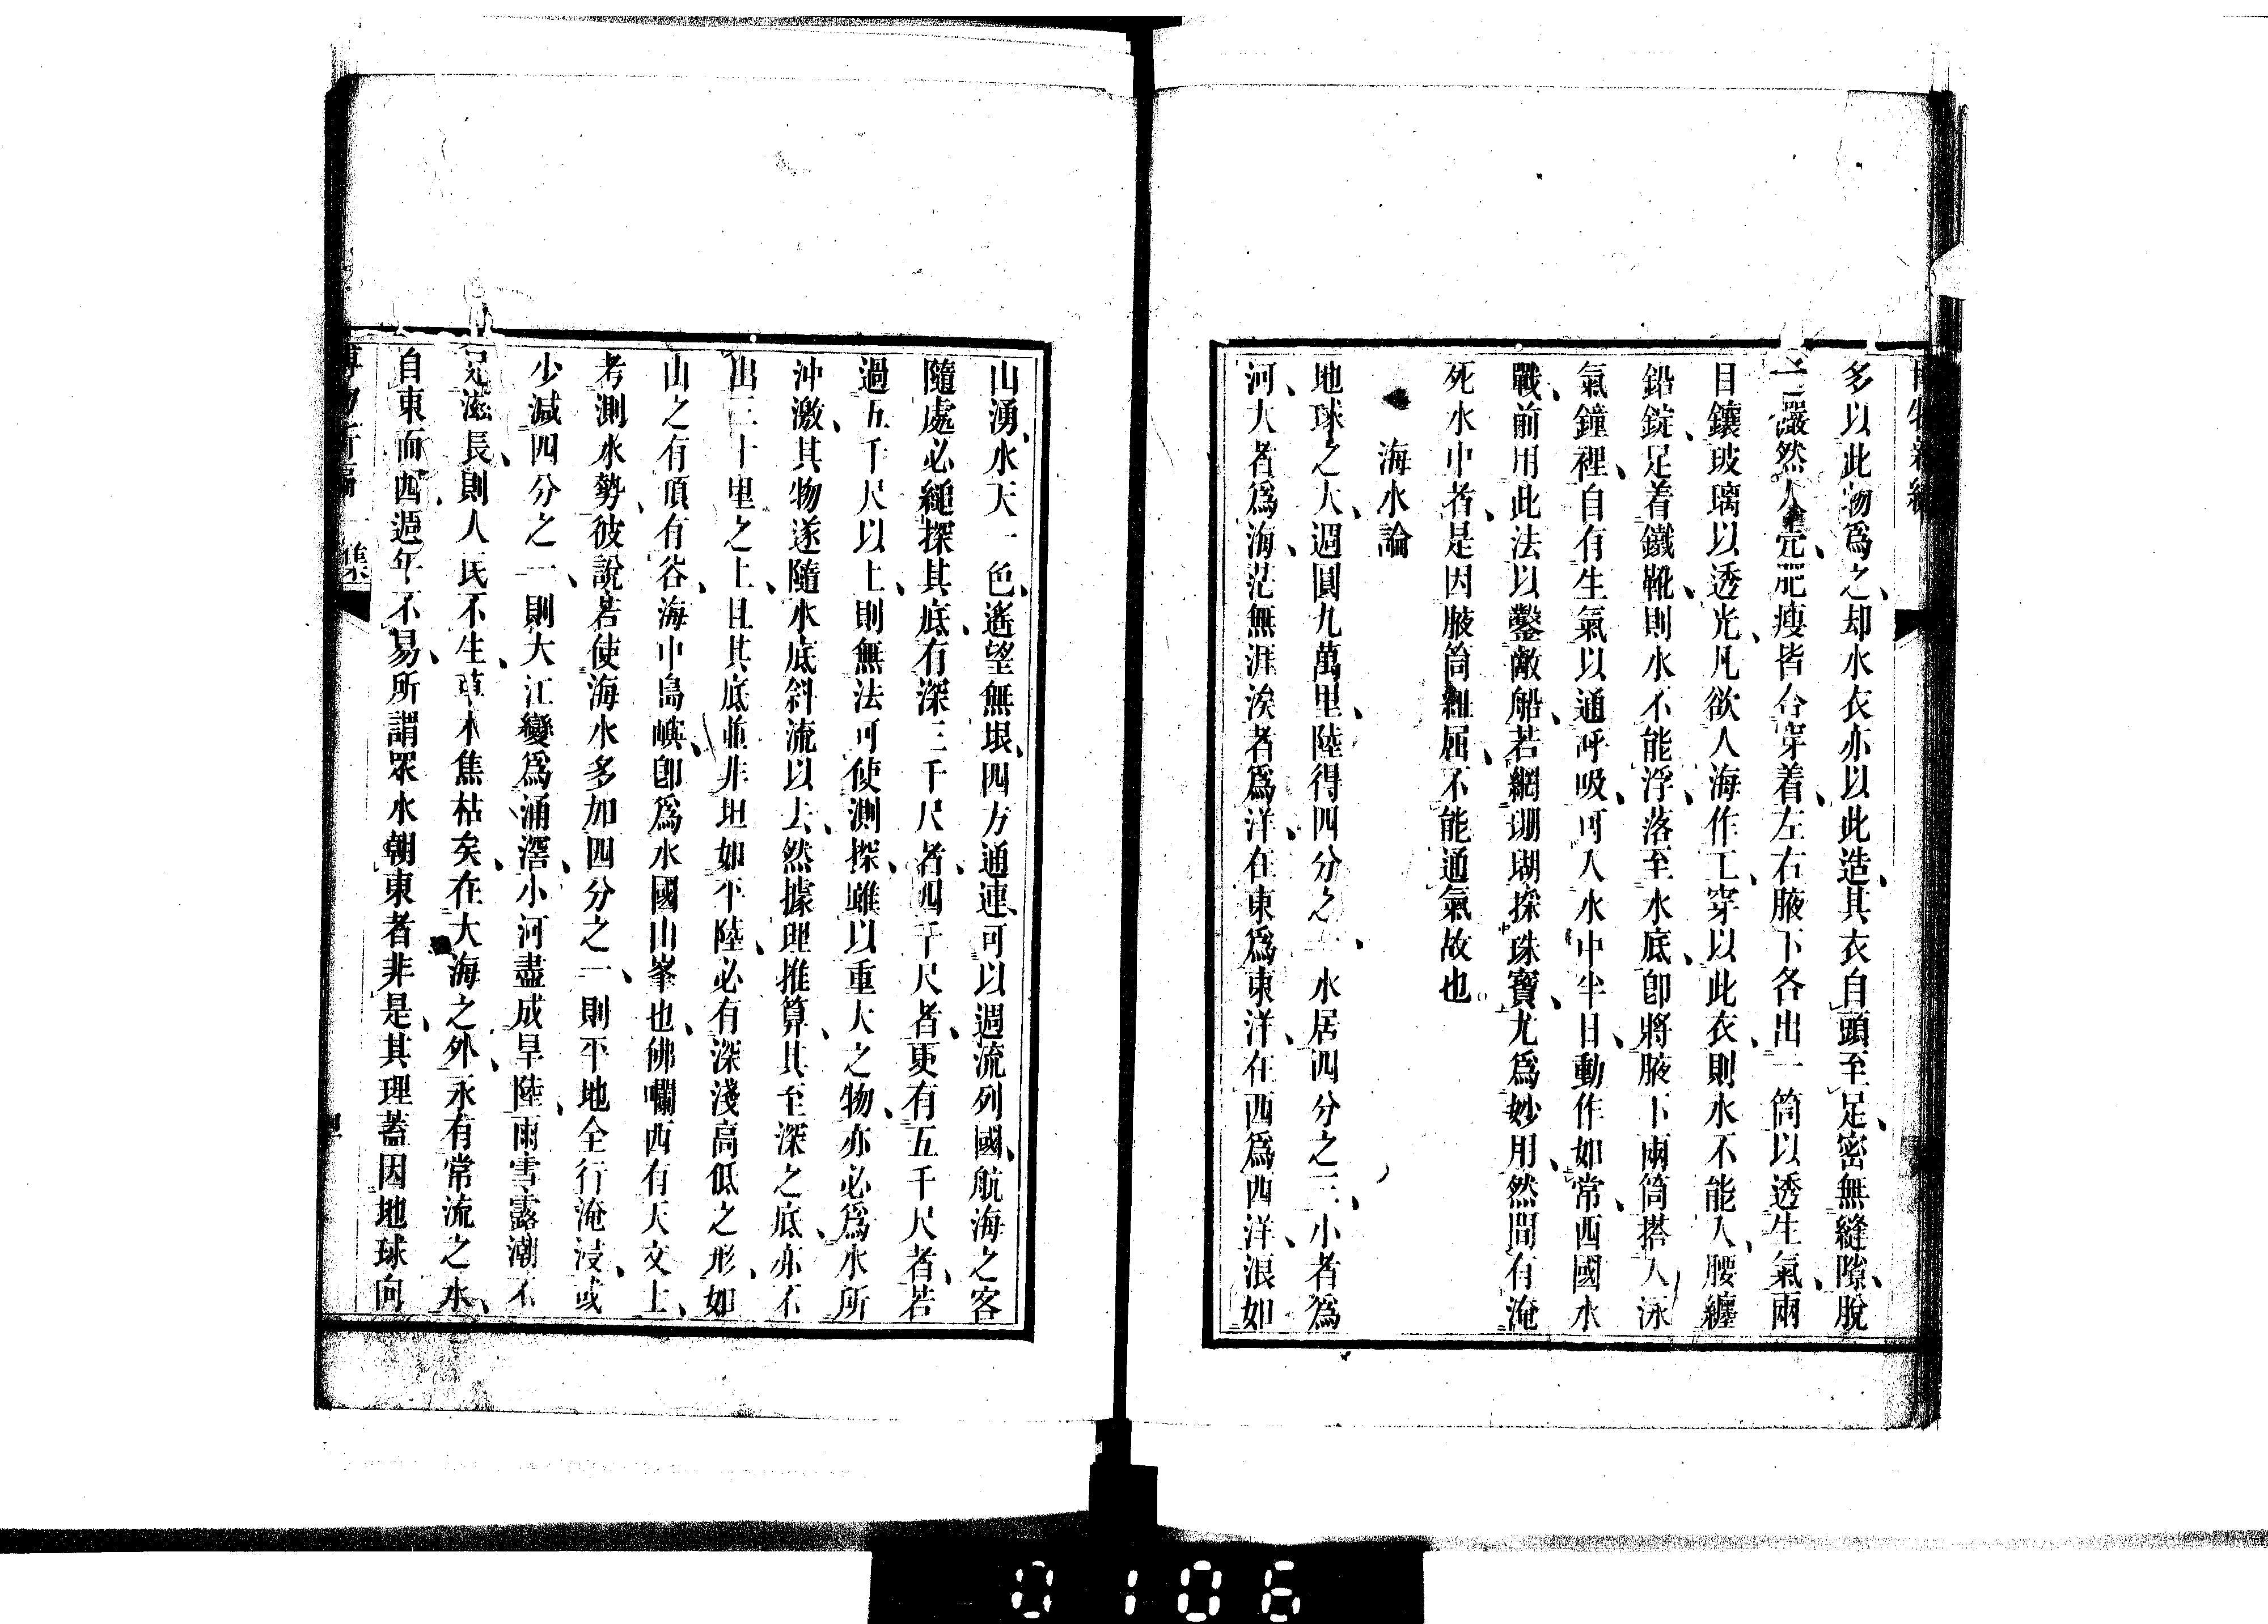 多以此物爲之、却水衣亦以此造、其衣自頭至足、密無縫隙、脫
之儼然人売、肥瘦皆合穿着、左右腋下各出一筒以透生氣、兩
目鑲玻璃以透光、凡欲入海作工、穿以此衣、則水不能入、腰纏
鉛錠、足着鐵靴、則水不能浮、落至水底、卽將腋下兩筒搭入泳
氣鐘裡、自有生氣以通呼吸、可入水中半日、動作如常、西國水
戰、前用此法以鑿敵船、若網珊瑚探珠寶、尤爲妙用、然間有淹
死水中者、是因腋筒紐屈、不能通氣故也
海水論
地球之大、週圓九萬里、陸得四分之一、水居四分之三、小者爲
河、大者爲海、茫無涯涘者爲洋、在東爲東洋、在西爲西洋、浪如
山湧、水天一色、遙望無垠、四方通連、可以週流列國、航海之客
隨處必繩探其底、有深三千尺者、四千尺者、更有五千尺者、若
過五千尺以上、則無法可使測探、雖以重大之物、亦必爲水所
沖激、其物遂隨水底斜流以去、然據理推算、其至深之底、亦不
出三十里之上、且其底並非坦如平陸、必有深淺高低之形、如
山之有頂有谷、海中島嶼、卽爲水國山峯也、佛囒西有天文士、
考測水勢、彼說若使海水多加四分之一、則平地全行淹浸、或
少減四分之一、則大江變爲涌澑、小河盡成旱陸、雨雪露潮不
足滋長、則人民不生、草木焦枯矣、在大海之外、永有常流之水、
自東而西、週年不易、所謂眾水朝東者非是、其理蓋因地球向
博物新編 一集